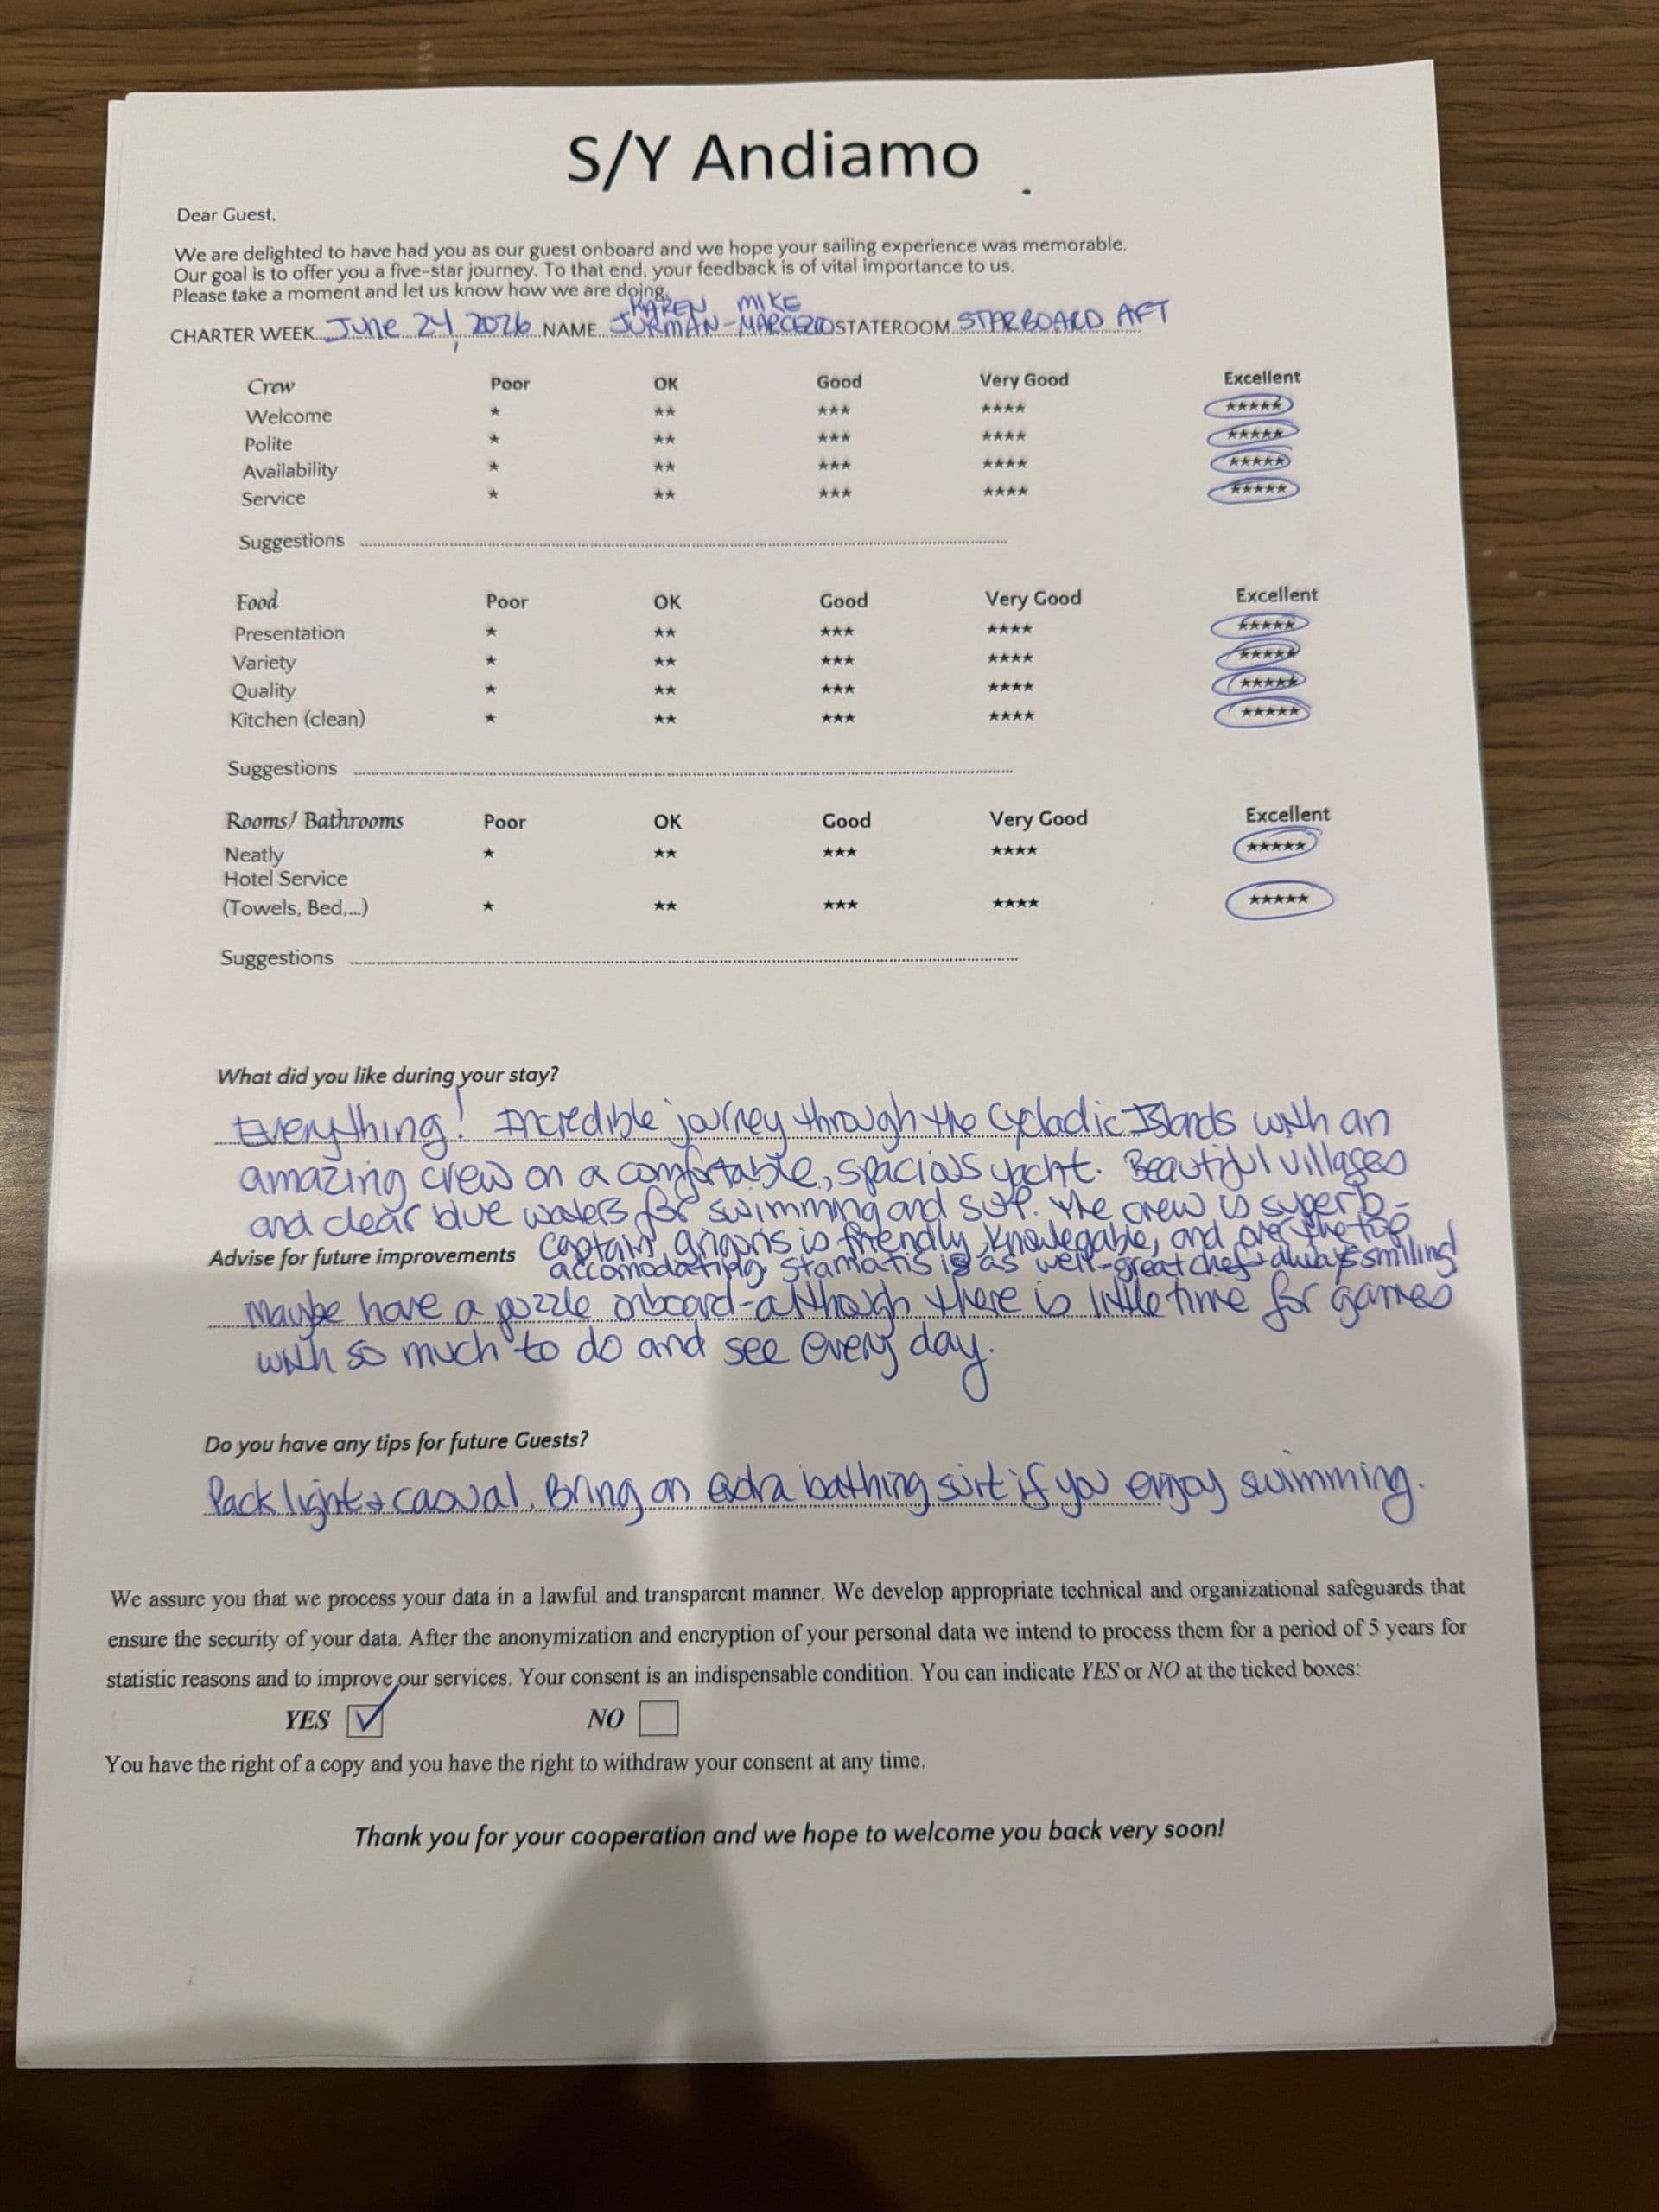 S/Y Andiamo
Dear Guest,
We are delighted to have had you as our guest onboard and we hope your sailing experience was memorable.
Our goal is to offer you a five-star journey. To that end, your feedback is of vital importance to us.
Please take a moment and let us know how we are doing.
KAREN MIKE
CHARTER WEEK June 24, 2026 NAME JURMAN- STATEROOM STARBOARD AFT
Crew Poor OK Good Very Good Excellent
Welcome ★ ★★ ★★★ ★★★★ ★★★★★
Polite ★ ★★ ★★★ ★★★★ ★★★★★
Availability ★ ★★ ★★★ ★★★★ ★★★★★
Service ★ ★★ ★★★ ★★★★ ★★★★★
Suggestions
Food Poor OK Good Very Good Excellent
Presentation ★ ★★ ★★★ ★★★★ ★★★★★
Variety ★ ★★ ★★★ ★★★★ ★★★★★
Quality ★ ★★ ★★★ ★★★★ ★★★★★
Kitchen (clean) ★ ★★ ★★★ ★★★★ ★★★★★
Suggestions
Rooms/ Bathrooms Poor OK Good Very Good Excellent
Neatly ★ ★★ ★★★ ★★★★ ★★★★★
Hotel Service
(Towels, Bed,...) ★ ★★ ★★★ ★★★★ ★★★★★
Suggestions
What did you like during your stay?
Everything! Incredible journey through the Cycladic Islands with an
amazing crew on a comfortable, spacious yacht. Beautiful villages
and clear blue waters for swimming and SUP. The crew is superb -
Captain is friendly, knowlegable, and over the top
Advise for future improvements
accomodating. Stamatis is as well-great chef + always smiling!
Maybe have a puzzle onboard-although there is little time for games
with so much to do and see every day.
Do you have any tips for future Guests?
Pack light + casual. Bring an extra bathing suit if you enjoy swimming.
We assure you that we process your data in a lawful and transparent manner. We develop appropriate technical and organizational safeguards that
ensure the security of your data. After the anonymization and encryption of your personal data we intend to process them for a period of 5 years for
statistic reasons and to improve our services. Your consent is an indispensable condition. You can indicate YES or NO at the ticked boxes:
YES ✓ NO
You have the right of a copy and you have the right to withdraw your consent at any time.
Thank you for your cooperation and we hope to welcome you back very soon!